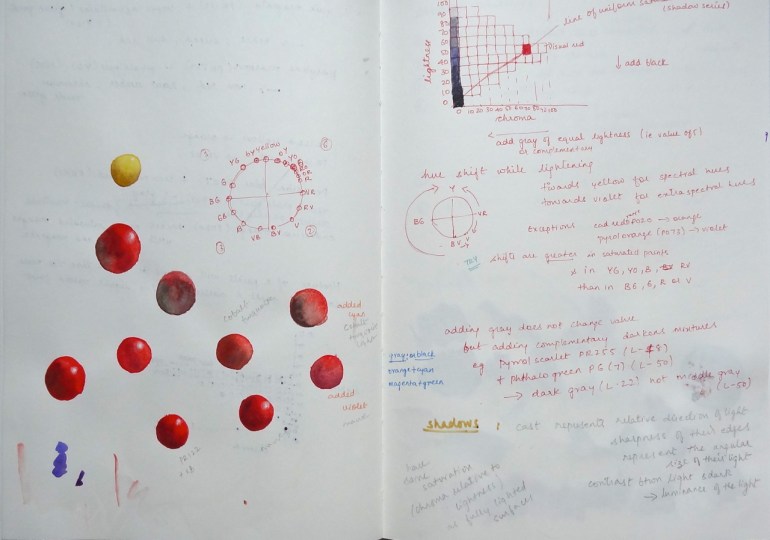 YG
GY
Yellow
OY
YO
O
RO
OR
R
G
BG
VR
GB
RV
B
VB
BV
V
cobalt
turquoise
added
cyan
cobalt
turquoise
light
added
violet
100
90
80
70
60
50
40
30
20
10
0
lightness
0 10 20 30 40 50 60
chroma
line of uniform
(shadow series)
red
↓ add black
add gray of equal lightness (ie value of 5)
or complementary
hue shift while lightening
towards yellow for spectral hues
towards violet for extraspectral hues
Y
BG
VR
BV
V
exceptions cad red PO20 → orange
pyrrol orange (PO73) → violet
TRY
shifts are greater in saturated
in YG, YO, B, RV
than in BG, G, R or V
adding gray does not change value
but adding complementary darkens mixtures
eg. Pyrrol scarlet PR255 (L-48)
+ Phthalo green PG(7) (L-50)
→ dark gray (L-22) not middle gray
(L-50)
gray or black
orange + cyan
magenta + green
shadows : cast represents relative direction of light
sharpness of their edges
represent the angular
size of the light
contrast btwn light & dark
→ luminance of the light
have
same
saturation
(chroma relative to
lightness)
as fully lighted
surfaces